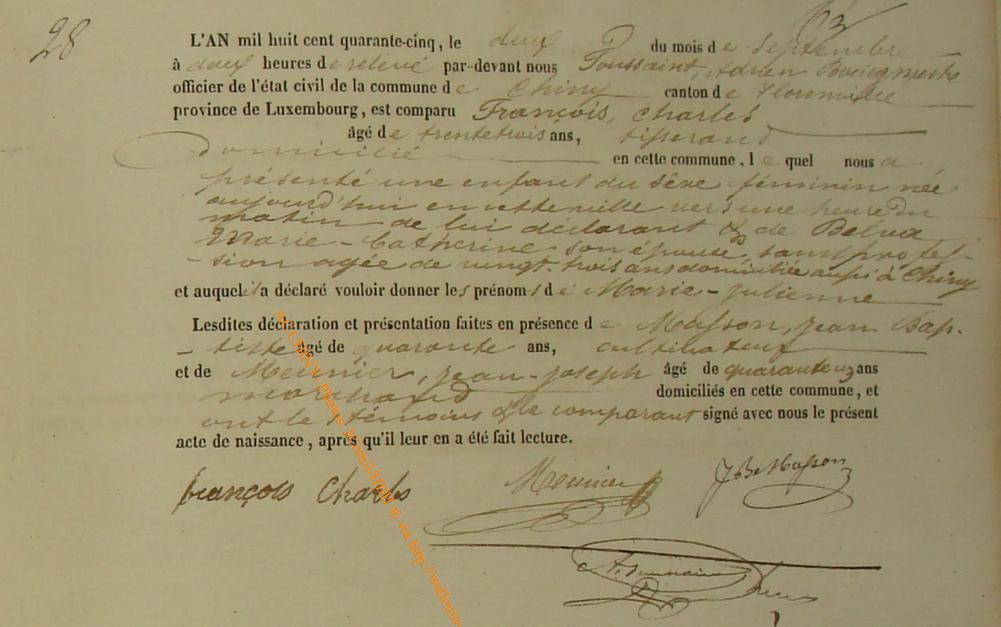 28
L'AN mil huit cent quarante-cinq, le deux du mois de Septembre
à deux heures de relevé par-devant nous Toussaint, Adrien
officier de l'état civil de la commune de Chiny canton de Florenville
province de Luxembourg, est comparu François, Charles
âgé de trente trois ans, tisserand
domicilié en cette commune, lequel nous a
présenté une enfant du sêxe féminin née
aujourd'hui en cette ville vers une heure du
matin de lui déclarant & de Belva
Marie-Catherine son épouse, sans profes-
-sion agée de vingt-trois ans domiciliée aussi à Chiny
et auquel il a déclaré vouloir donner les prénoms de Marie-Julienne
Lesdites déclaration et présentation faites en présence de Masson, Jean Bap-
-tiste âgé de quarante ans, cultivateur
et de Meunier, Jean-Joseph âgé de quarante ans
marchand domiciliés en cette commune, et
ont les témoins & le comparant signé avec nous le présent
acte de naissance, après qu'il leur en a été fait lecture.
françois Charles Meunier JBte Masson